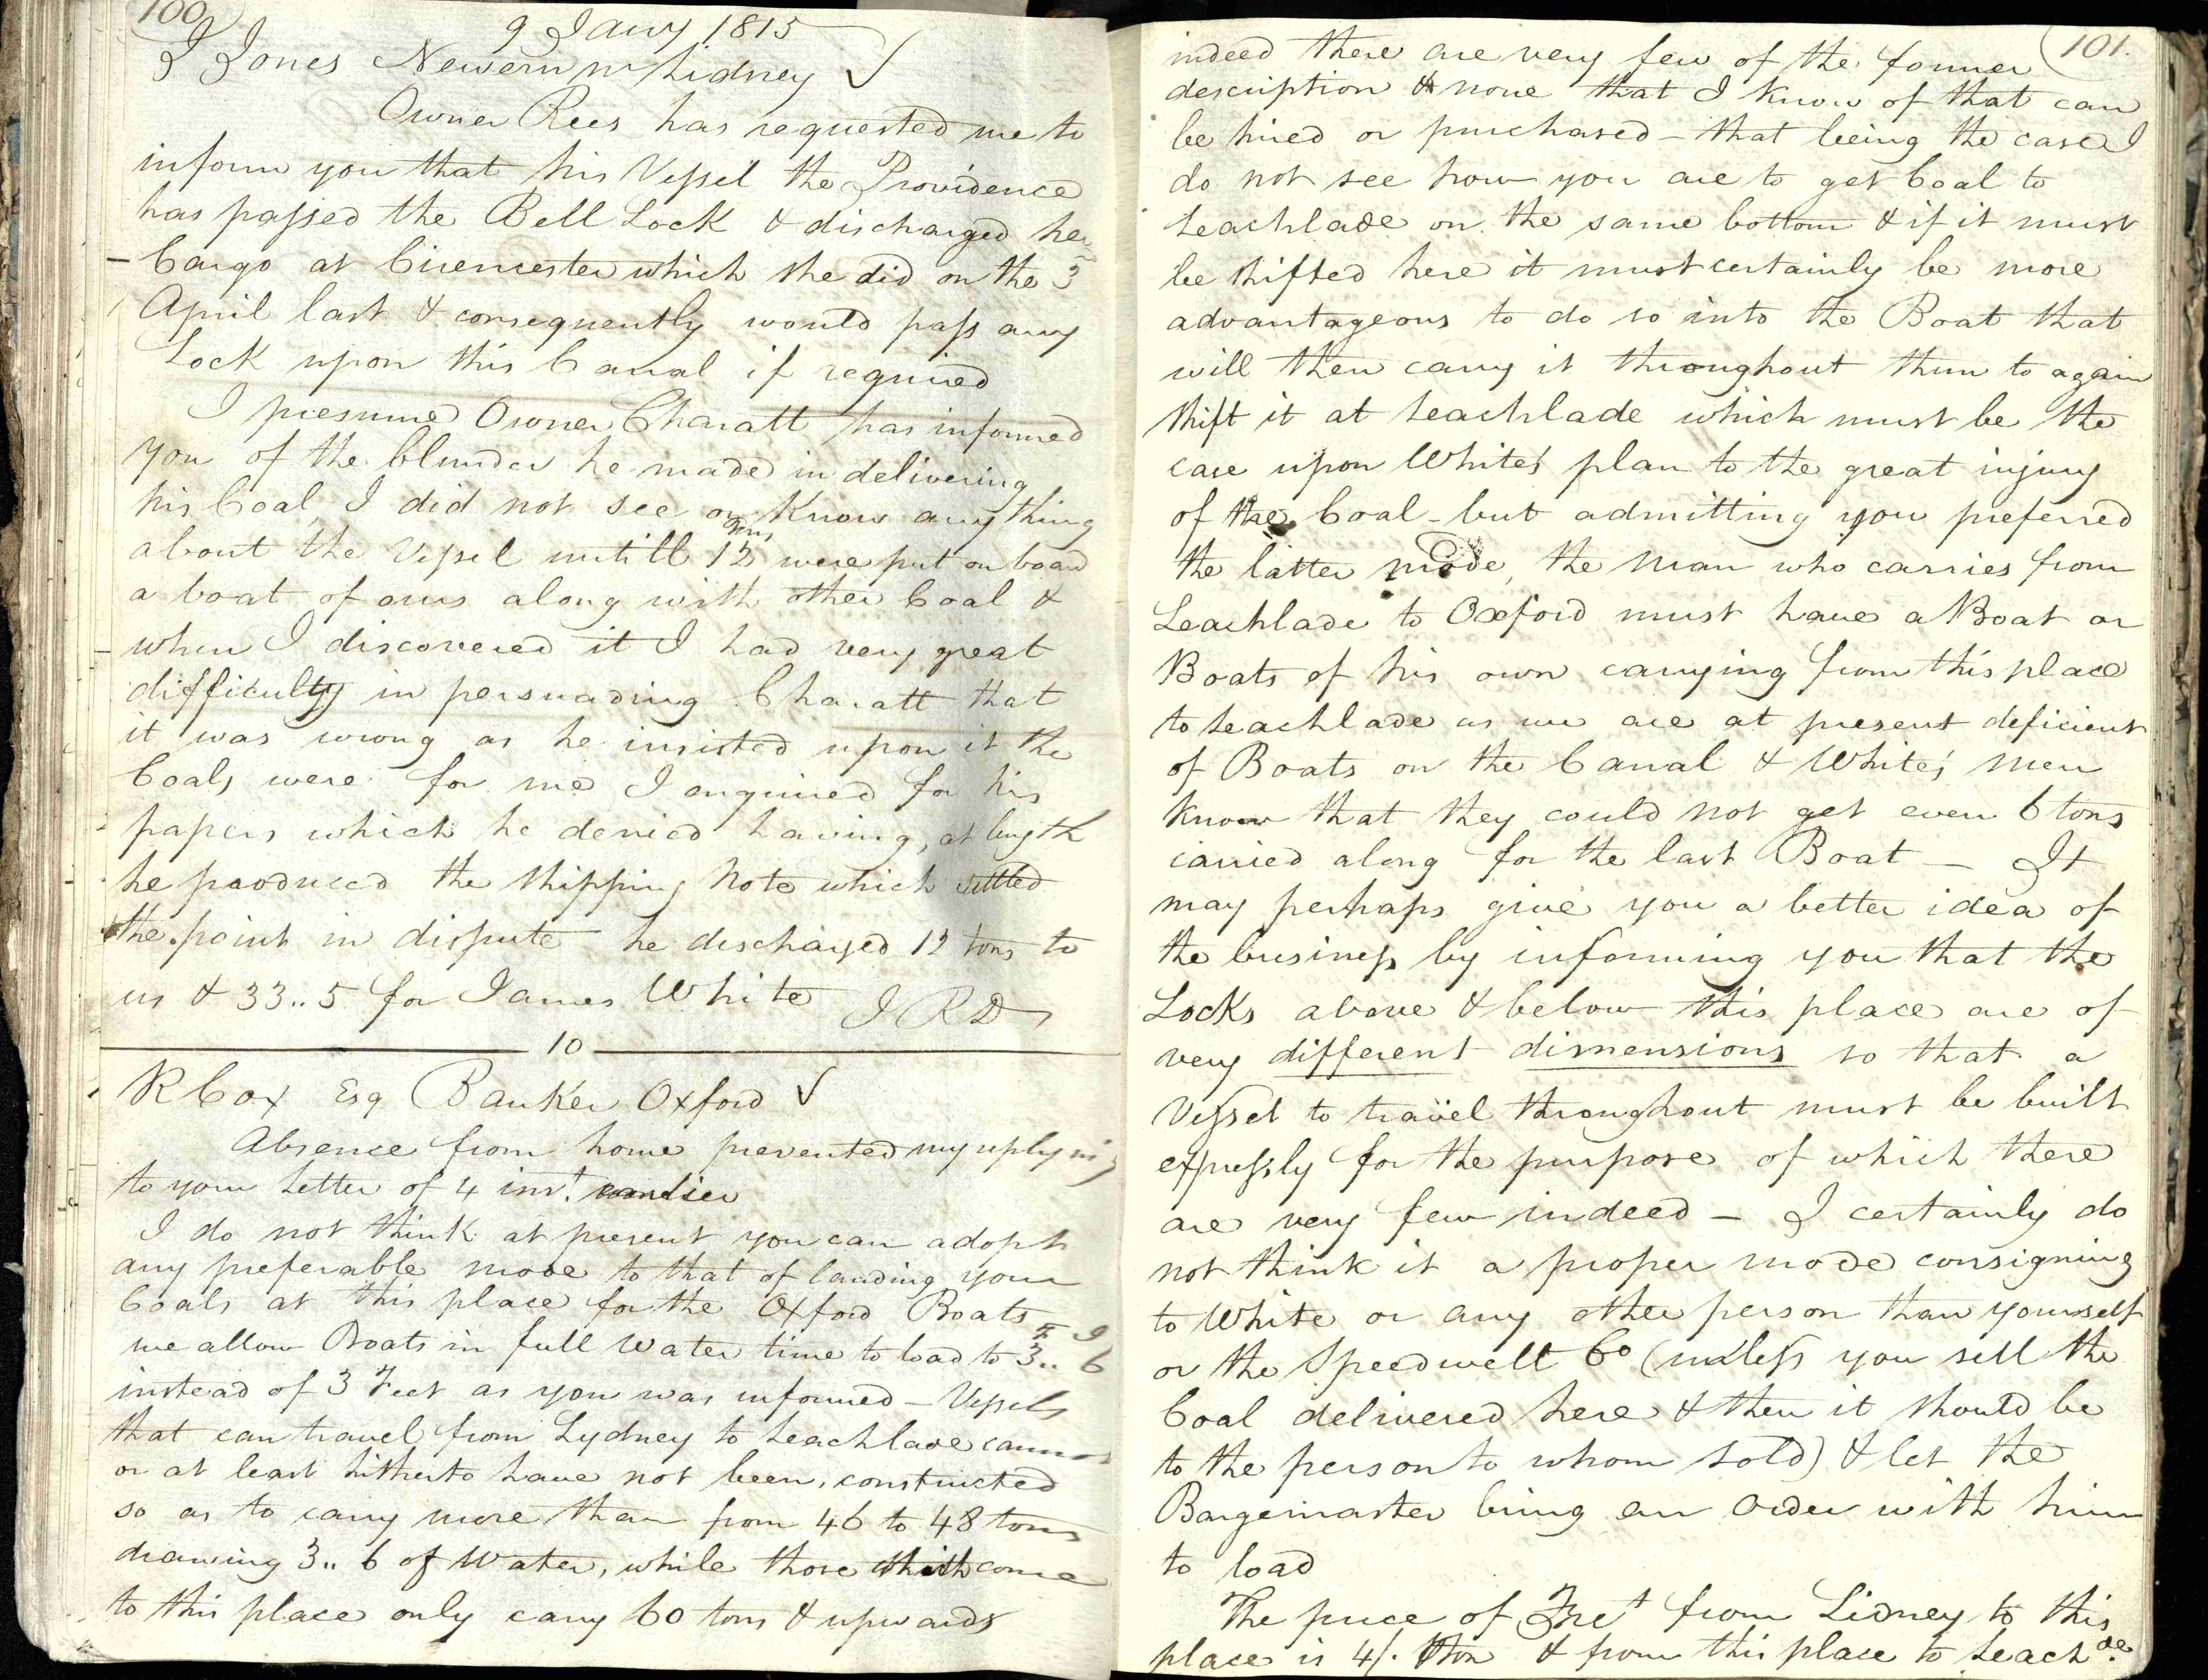 100
9 Jany 1815
J Jones Newern nr Lidney ✓
Owner Rees has requested me to
inform you that his Vessel the Providence
has passed the Bell Lock & discharged her
Cargo at Cirencester which she did on the 3
April last & consequently would pass any
Lock upon this Canal if required
I presume Owner Charatt has informed
you of the blunder he made in delivering
his Coal, I did not see or know any thing
about the Vessel untill 12 tons were put on board
a boat of ours along with other Coal &
when I discovered it I had very great
difficulty in persuading Charatt that
it was wrong as he insisted upon it the
Coals were for me I enquired for his
papers which he denied having, at length
he produced the shipping Note which settled
the point in dispute he discharged 12 tons to
us & 33..5 for James White J R D
10
R Cox Esq Banker Oxford ✓
Absence from home prevented my replying
to your Letter of 4 inst. earlier
I do not think at present you can adopt
any preferable mode to that of landing your
Coals at this place for the Oxford Boats
we allow Boats in full Water time to load to 3.. 6
instead of 3 Feet as you was informed – Vessels
that can travel from Lydney to Leachlade cannot
or at least hitherto have not been, constructed
so as to carry more than from 46 to 48 tons
drawing 3.. 6 of Water, while those which come
to this place only carry 60 tons & upwards
101.
indeed there are very few of the former
description & none that I know of that can
be hired or purchased – that being the case I
do not see how you are to get Coal to
Leachlade on the same bottom & if it must
be shifted here it must certainly be more
advantageous to do so into the Boat that
will then carry it throughout than to again
shift it at Leachlade which must be the
case upon White's plan to the great injury
of the Coal – but admitting you preferred
the latter mode, the man who carries from
Leachlade to Oxford must have a Boat or
Boats of his own carrying from this place
to Leachlade as we are at present deficient
of Boats on the Canal & White's men
know that they could not get even 6 tons
carried along for the last Boat – It
may perhaps give you a better idea of
the business by informing you that the
Locks above & below this place are of
very different dimensions so that a
Vessel to travel throughout must be built
expressly for the purpose of which there
are very few indeed – I certainly do
not think it a proper mode consigning
to White or any other person than yourself
or the Speedwell Co (unless you sell the
Coal delivered here & then it should be
to the person to whom sold) & let the
Bargemaster bring an Order with him
to load
The price of Fret from Lidney to this
place is 4/. ton & from this place to Leachde.